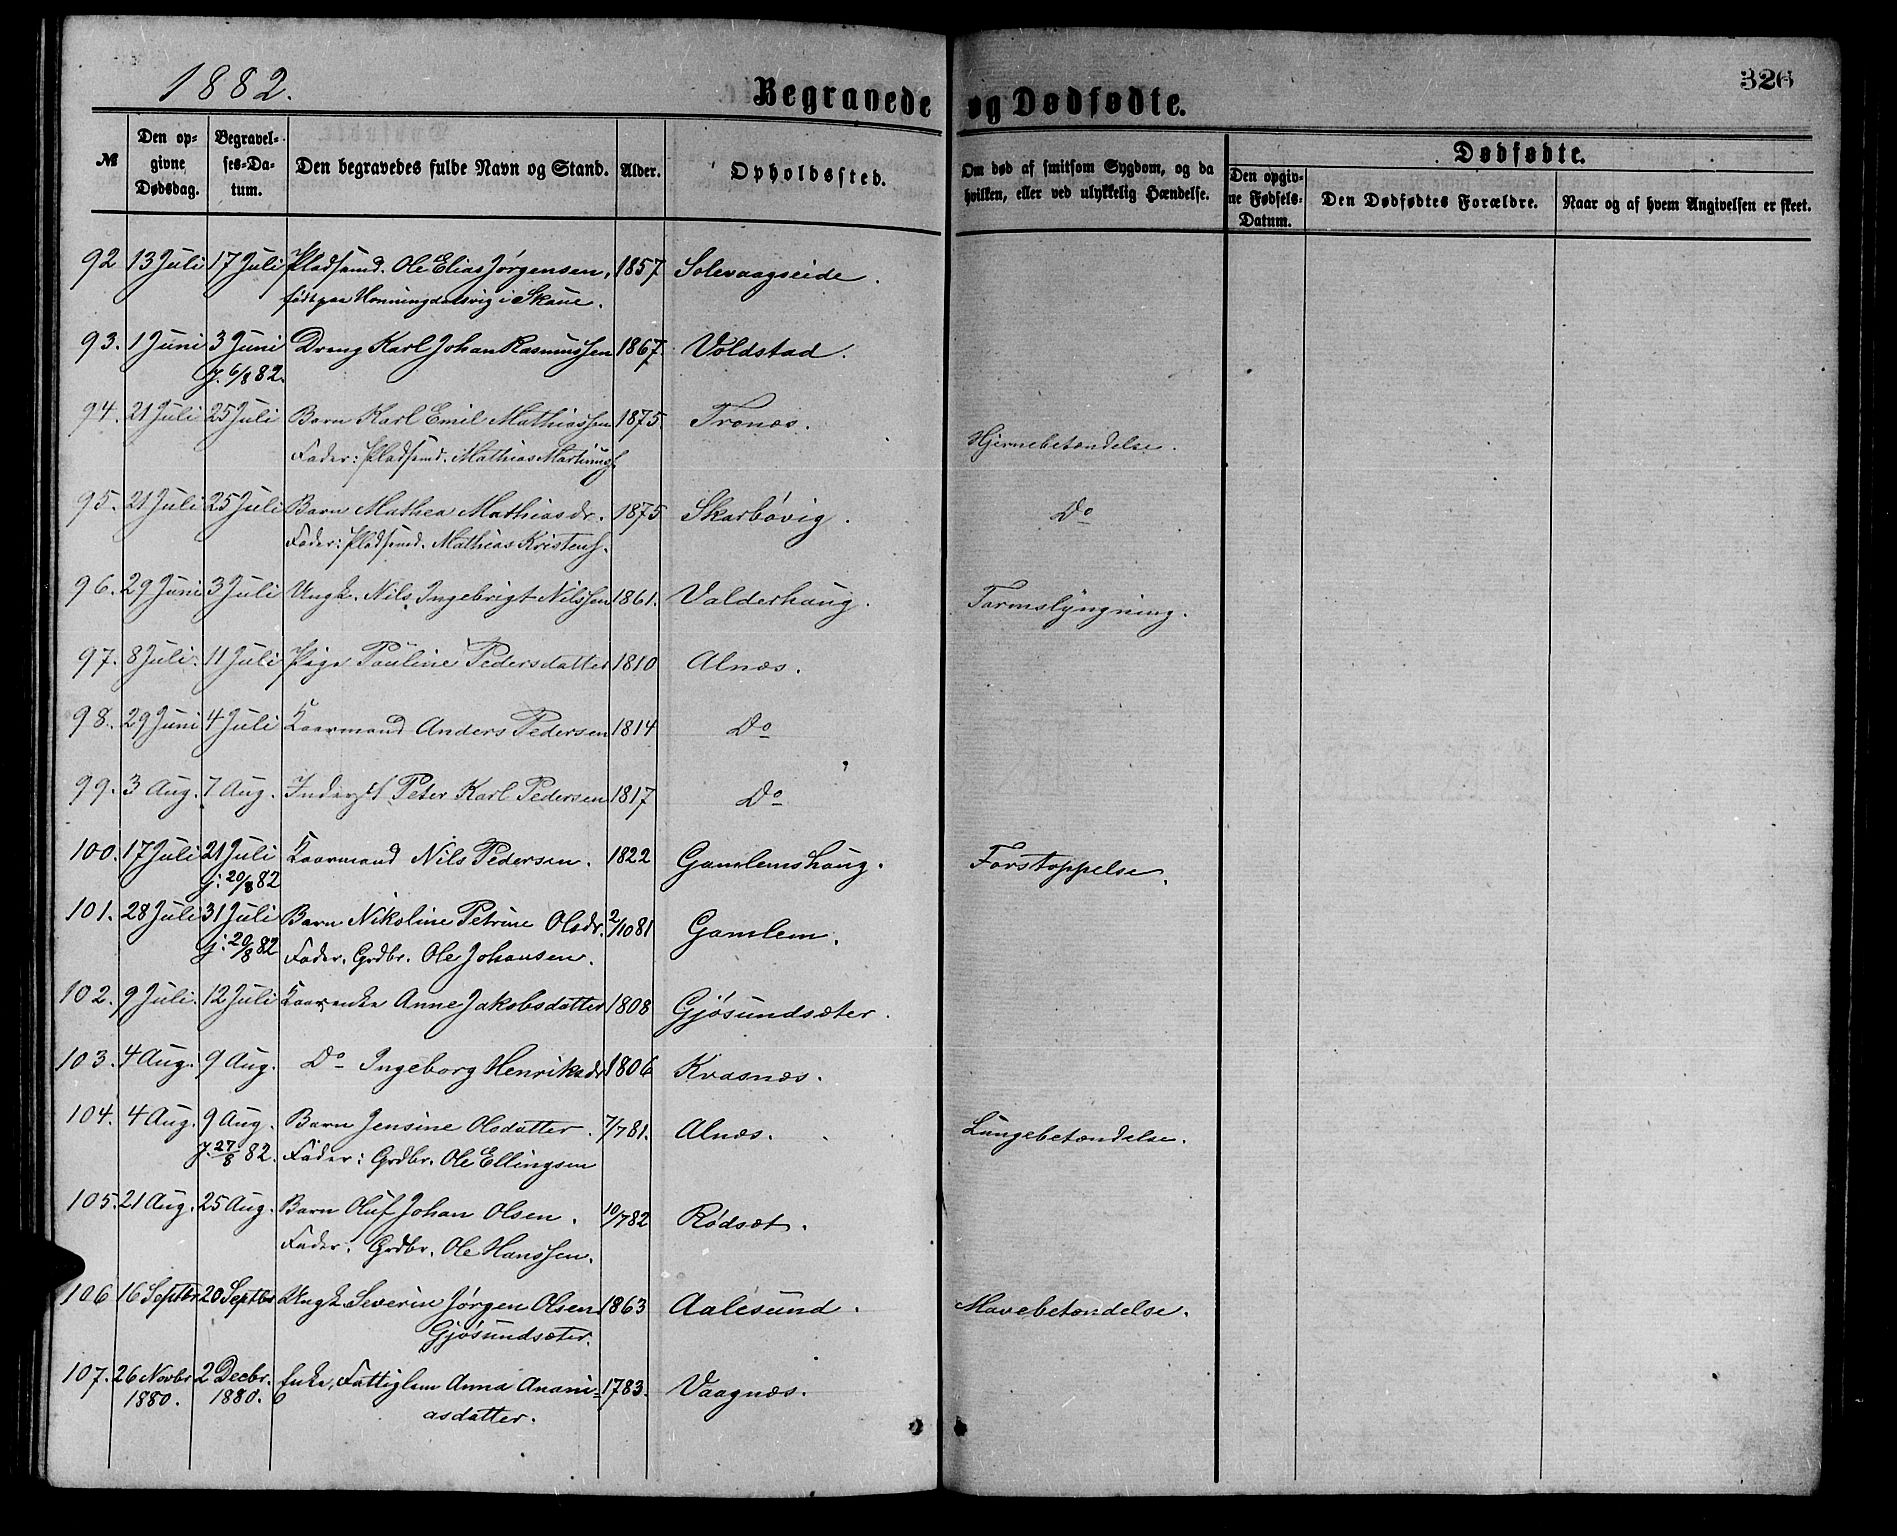 1882.
Begravede og Dødfødte.
326
№
Den opgivne Dødsdag.
Begravelses-Datum.
Den begravedes fulde Navn og Stand.
Alder.
Opholdssted.
Om død af smitsom Sygdom, og da hvilken, eller ved ulykkelig Hændelse.
Dødfødte.
Den opgivne Fødsels-Datum.
Den Dødfødtes Forældre.
Naar og af hvem Angivelsen er skeet.
92 13 Juli 17 Juli Pladsmd. Ole Elias Jørgensen, 1857 Solevaagseide.
født paa Honningdalsvig i Skaue.
93. 1 Juni 3 Juni Dreng Karl Johan Rasmussen 1867. Voldstad.
J. 6/8 82.
94. 21 Juli 25 Juli Barn Karl Emil Mathiassen 1875. Tronæs. Hjernebetændelse.
Fader: Pladsmd. Mathias Martinus
95. 21 Juli 25 Juli Barn Mathea Mathiasdr. 1875 Skarbøvig. Do
Fader: Pladsmd. Mathias Kristens.
96. 29 Juni 3 Juli Ungk. Nils Ingebrigt Nilssen 1861. Valderhaug. Tarmslyngning.
97. 8 Juli. 11 Juli Pige Pauline Pedersdatter 1810 Alnæs.
98. 29 Juni 4 Juli Kaarmand Anders Pedersen 1814 Do
99. 3 Aug. 7 Aug. Inderst Peter Karl Pedersen 1817 Do
100. 17 Juli 21 Juli Kaarmand Nils Pedersen. 1822 Gamlemshaug. Forstoppelse.
j. 20/8 82
101. 28 Juli 31 Juli Barn Nikoline Petrine Olsdr. 2/10 81 Gamlem.
j. 20/8 82 Fader. Grdbr. Ole Johansen.
102. 9 Juli. 12 Juli Kaarenke Anne Jakobsdatter 1808 Gjøsundsæter.
103. 4 Aug. 9 Aug. Do Ingeborg Henriksdr 1806 Kvasnæs.
104. 4 Aug. 9 Aug. Barn Jensine Olsdatter. 7/7 81. Alnæs. Lungebetændelse.
J. 27/8 82. Fader: Grdbr. Ole Ellingsen
105. 21 Aug. 25 Aug. Barn Oluf Johan Olsen. 10/7 82 Rødsæt.
Fader: Grdbr. Ole Hanssen.
106 16 Septbr 20 Septbr Ungk. Severin Jørgen Olsen 1863 Aalesund. Mavebetændelse.
Gjøsundsæter.
107. 26 Novbr 2 Decbr. Enke, Fattiglem Anna Anani= 1783. Vaagnæs.
1880. 1880. asdatter.